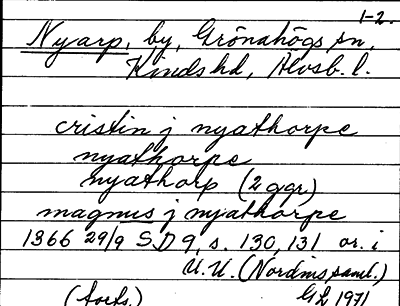 1-2.
Nyarp, by, Grönahögs sn,
Kinds hd, Älvsb. l.
cristin j nyathorpe
nyathorpe
nyathorp (2 ggr)
magnus j nyathorpe
1366 29/9 SD 9, s. 130, 131 or. i
U.U. (Nordins saml.)
(Forts.) GL 1971